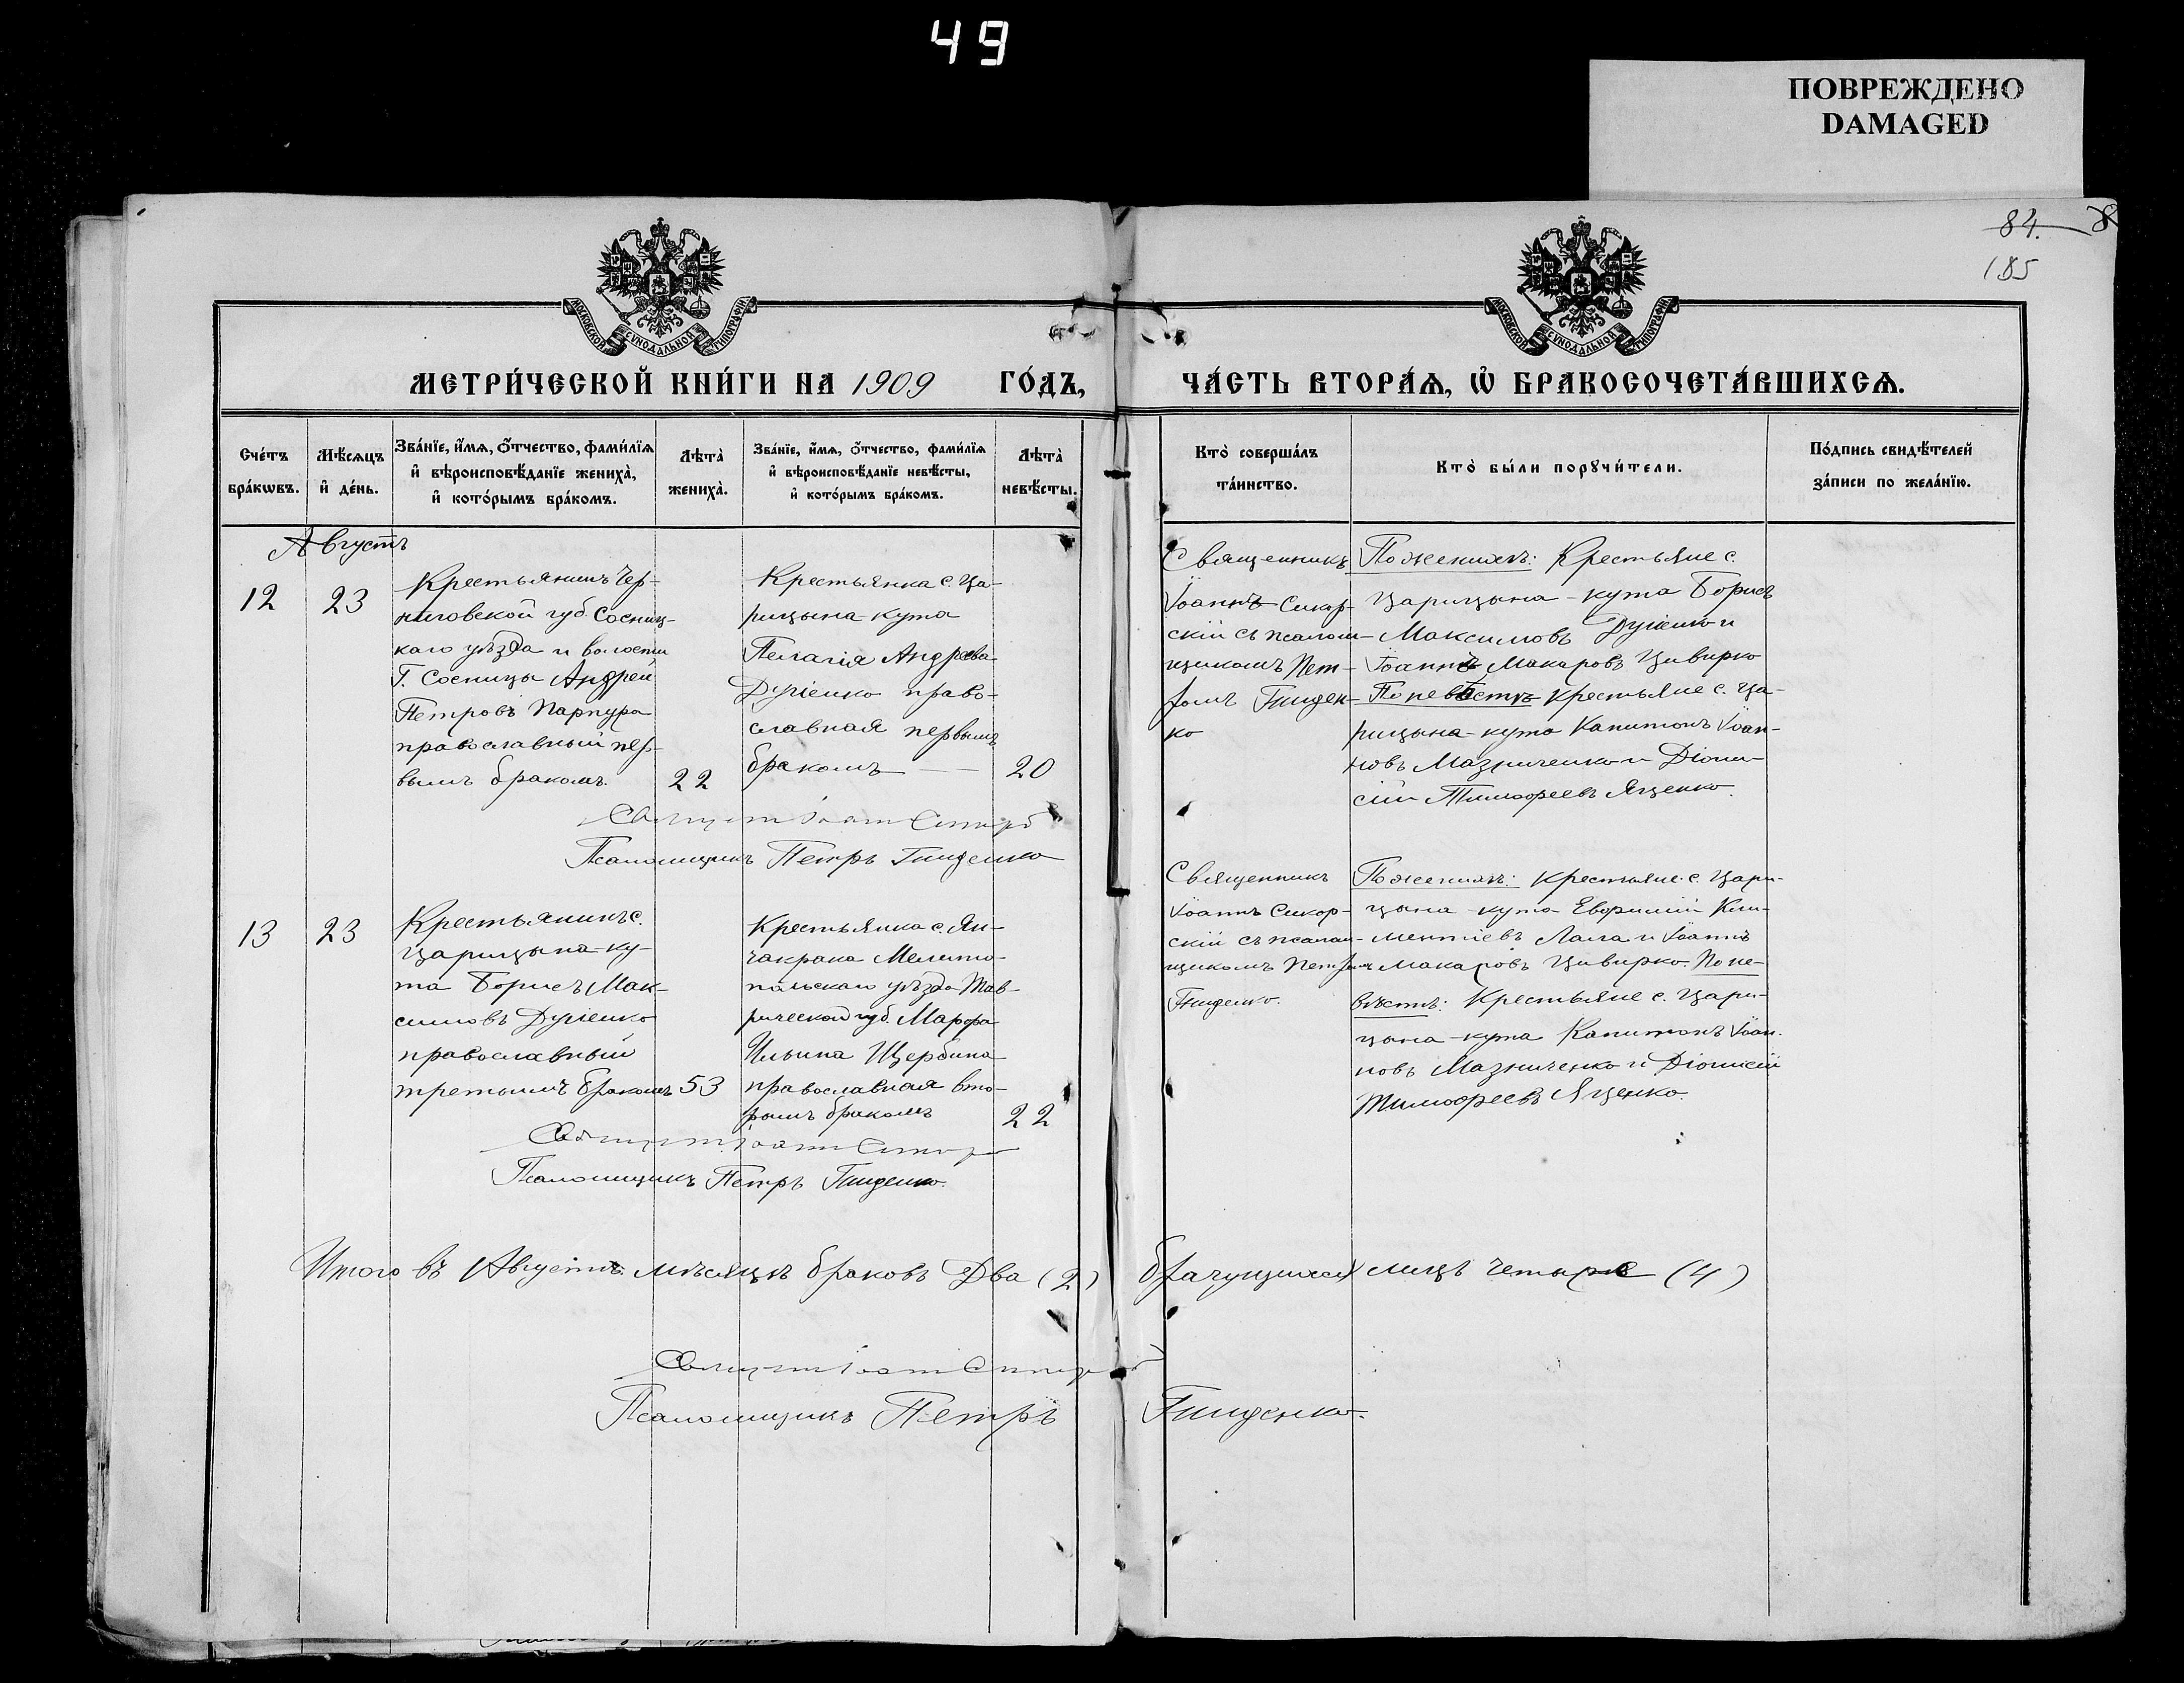 49
ПОВРЕЖДЕНО
DAMAGED
84.
185
МОСКОВСКОЙ СѴНОДАЛЬНОЙ ТИПОГРАФІИ
МОСКОВСКОЙ СѴНОДАЛЬНОЙ ТИПОГРАФІИ
МЕТРИ́ЧЕСКОЙ КНИ́ГИ НА 1909 ГО́ДЪ,
ЧА́СТЬ ВТОРА́Ѧ, Ѡ҆ БРАКОСОЧЕТА́ВШИХСѦ.
Сче́тъ бра́кωвъ.
Мѣ́сѧцъ и҆ де́нь.
Зва́нїе, и҆́мѧ, ѻ҆́тчество, фами́лїѧ и҆ вѣроисповѣ́данїе жениха̀, и҆ кото́рымъ бра́комъ.
Лѣта̀ жениха̀.
Зва́нїе, и҆́мѧ, ѻ҆́тчество, фами́лїѧ и҆ вѣроисповѣ́данїе невѣ́сты, и҆ кото́рымъ бра́комъ.
Лѣта̀ невѣ́сты.
Кто̀ соверша́лъ та́инство.
Кто̀ бы́ли порꙋчи́тели.
По́дпись свидѣ́телей за́писи по жела́нїю.
Августъ
12
23
Крестьянинъ Чер-
ниговской губ. Сосниц-
каго уѣзда и волости
Г. Сосницы Андрей
Петровъ Парпура
православный пер-
вымъ бракомъ.
22
Крестьянка с. Ца-
рицына-кута
Пелагія Андреева
Дугіенко право-
славная первымъ
бракомъ —
20
Священникъ
Іоаннъ Сикор-
скій съ псалом-
щикомъ Пет-
ромъ Гниден-
ко
По женихѣ: Крестьяне с.
Царицына-кута Борисъ
Максимовъ Дугіенко и
Іоаннъ Макаровъ Цивирко
По невѣстѣ крестьяне с. Ца-
рицына-кута Капитонъ Іоан-
новъ Мазниченко и Діони-
сій Тимофеевъ Яценко.
Псаломщикъ Петръ Гниденко
13
23
Крестьянинъ с.
Царицына-ку-
та Борисъ Мак-
симовъ Дугіенко
православный
третьимъ бракомъ
53
Крестьянка с. Ян-
чакрака Мелито-
польскаго уѣзда Тав-
рической губ. Марфа
Ильина Щербина
православная вто-
рымъ бракомъ
22
Священникъ
Іоаннъ Сикор-
скій съ псалом-
щикомъ Петромъ
Гниденко.
По женихѣ: Крестьяне с. Цари-
цына-кута Евфимій Кли-
ментіевъ Лала и Іоаннъ
Макаровъ Цивирко. По не-
вѣстѣ: Крестьяне с. Цари-
цына-кута Капитонъ Іоан-
новъ Мазниченко и Діонисій
Тимофеевъ Яценко.
Псаломщикъ Петръ Гниденко.
Итого въ Августѣ мѣсяцѣ браковъ Два (2) брачущихся лицъ четыре (4)
Псаломщикъ Петръ Гниденко.